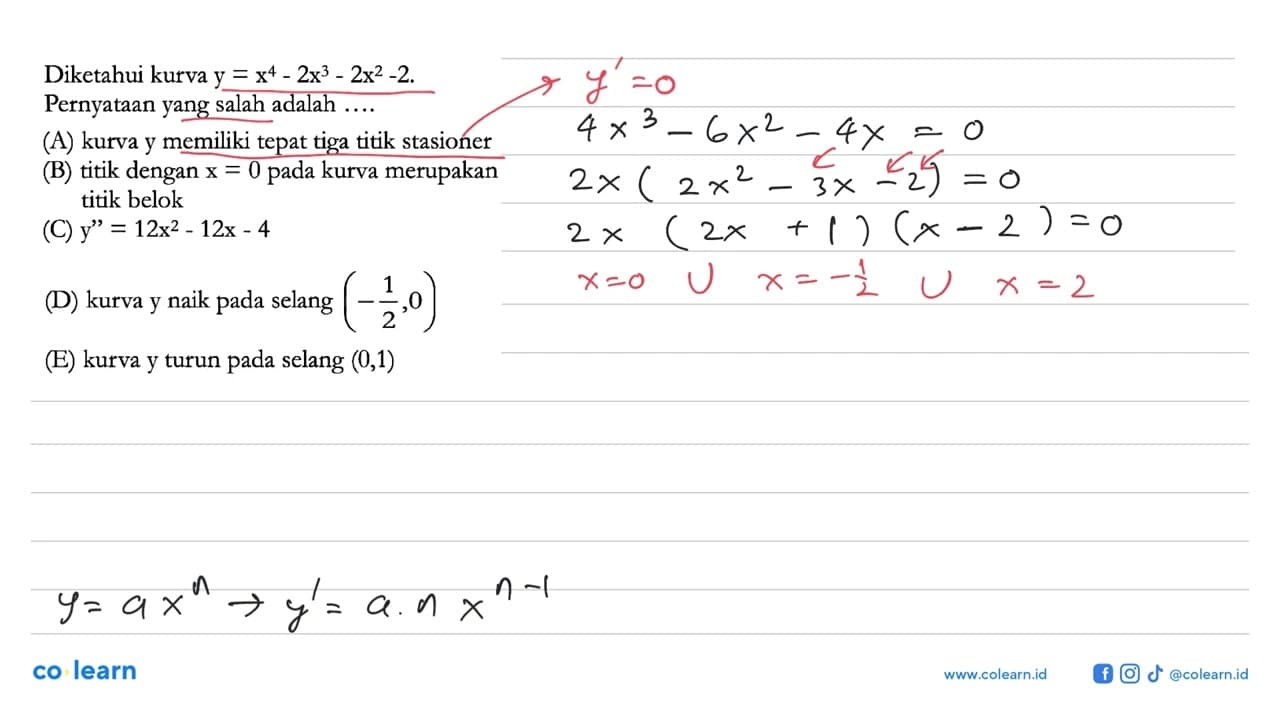 Diketahui kurva y = x⁴ - 2x³ - 2x² -2.
Pernyataan yang salah adalah ....
(A) kurva y memiliki tepat tiga titik stasioner
(B) titik dengan x = 0 pada kurva merupakan
titik belok
(C) y” = 12x² - 12x - 4
(D) kurva y naik pada selang (-1/2,0)
(E) kurva y turun pada selang (0,1)
y' = 0
4x³ - 6x² - 4x = 0
2x (2x² - 3x - 2) = 0
2x (2x + 1) (x - 2) = 0
x=0 U x = -1/2 U x = 2
y = a x^n → y' = a . n x^(n-1)
co learn
www.colearn.id
@colearn.id